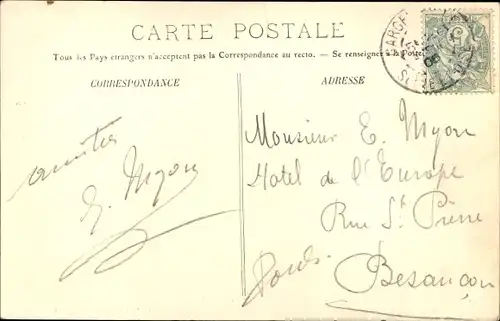 CARTE POSTALE
Tous les Pays étrangers n'acceptent pas la Correspondance au recto. — Se renseigner à la Poste
CORRESPONDANCE
ADRESSE
amitiés
E. Myon
Monsieur E. Myon
Hotel de l'Europe
Rue St Pierre
Besançon
Doubs